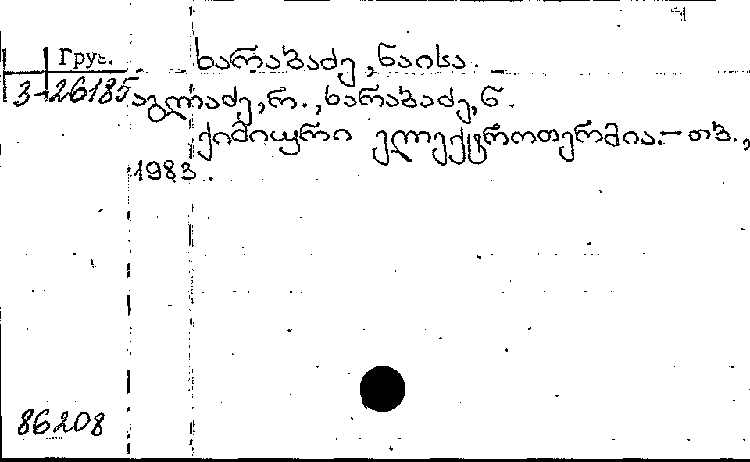 Груз.
ხარაბაძე, ნაისა.
3-26185
აგლაძე, რ., ხარაბაძე, ნ.
ქიმიური ელექტროთერმია. - თბ.,
1983.
86208